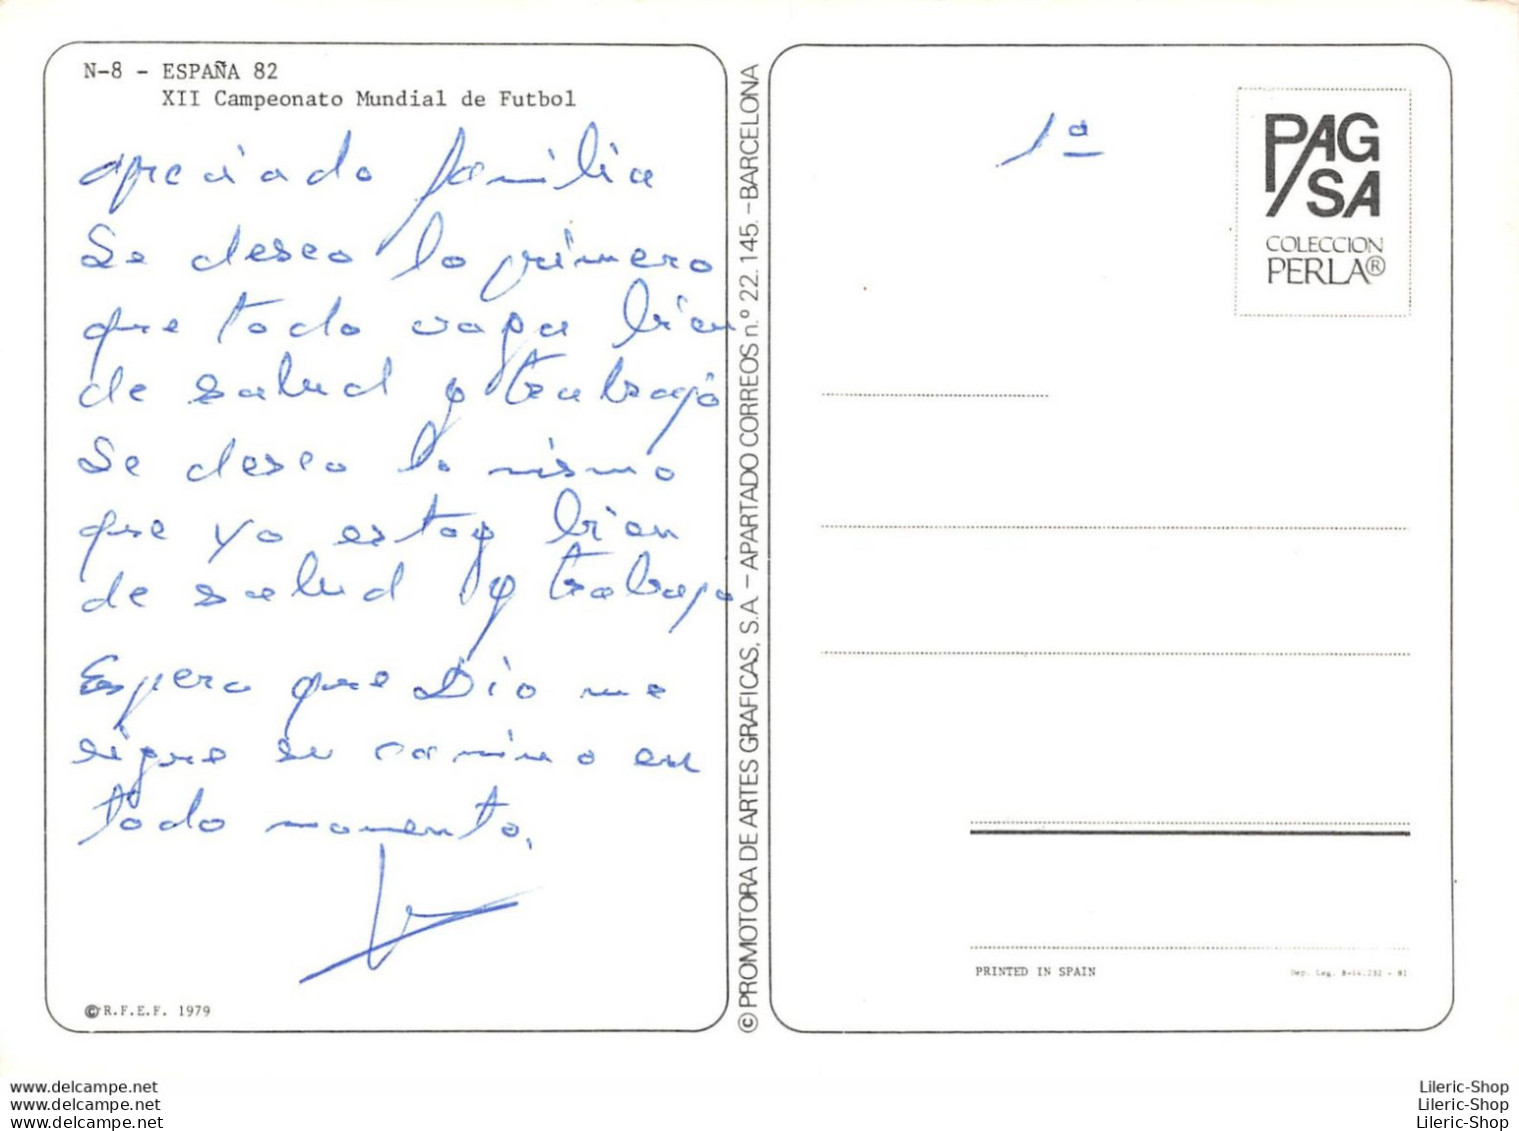 N-8 - ESPAÑA 82
XII Campeonato Mundial de Futbol
apreciado familia
Se deseo lo primero
que todo vaga bien
de salud y trabajo
Se deseo lo mismo
que yo estoy bien
de salud y trabajo
Espero que Dio me
sigue su camino en
todo momento.
© R.F.E.F. 1979
© PROMOTORA DE ARTES GRAFICAS, S.A. - APARTADO CORREOS n.º 22.145. - BARCELONA
1ª
PAG
SA
COLECCION
PERLA®
PRINTED IN SPAIN
www.delcampe.net
www.delcampe.net
www.delcampe.net
Lileric-Shop
Lileric-Shop
Lileric-Shop